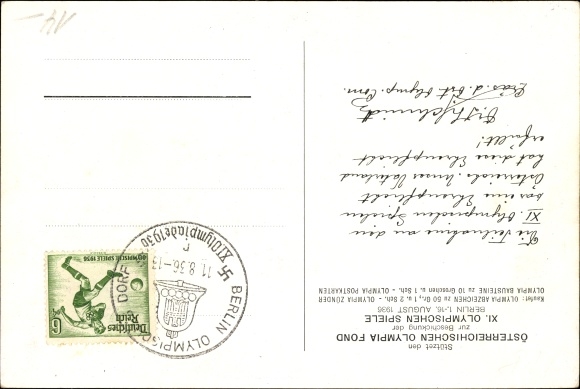 Stützet den
ÖSTERREICHISCHEN OLYMPIA FOND
zur Beschickung der
XI. OLYMPISCHEN SPIELE
BERLIN 1.-16. AUGUST 1936
Kaufet: OLYMPIA ABZEICHEN zu 50 Gr., 1 u. 2 Sch. · OLYMPIA ZÜNDER
OLYMPIA BAUSTEINE zu 10 Groschen u. 1 Sch. · OLYMPIA POSTKARTEN
Die Teilnahme an den
XI. Olympischen Spielen
war eine Ehrenpflicht
Österreichs. Unser Vaterland
hat diese Ehrenpflicht
erfüllt!
Schmidt
Präs. d. Öst. Olymp. Com.
Deutsches
Reich
6
OLYMPISCHE SPIELE 1936
BERLIN OLYMPISCHES DORF
XI. Olympiade 1936
11.8.36.-13
r
14.-